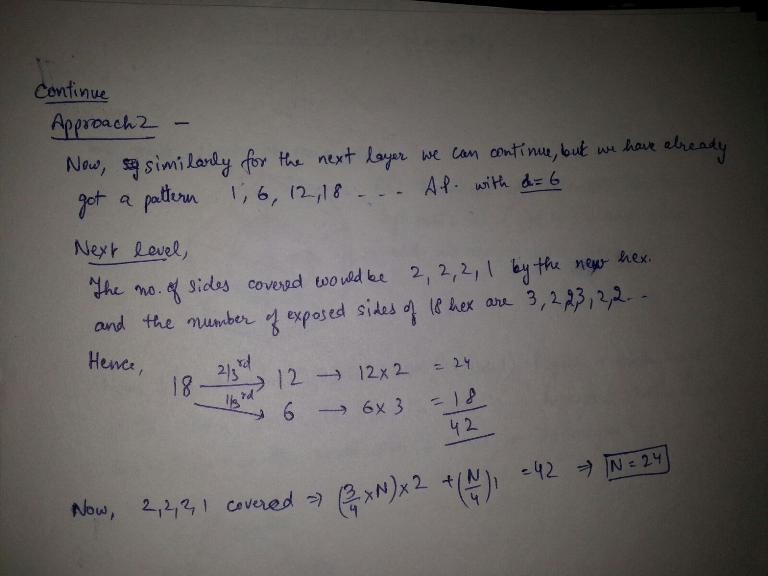 Continue
Approach 2 –
Now, similarly for the next layer we can continue, but we have already
got a pattern 1, 6, 12, 18 - - - A.P. with d=6
Next level,
The no. of sides covered would be 2, 2, 2, 1 by the new hex.
and the number of exposed sides of 18 hex are 3, 2,2,3, 2, 2 - -
Hence,
18 2/3rd → 12 → 12x2 = 24
1/3rd → 6 → 6x3 = 18
42
Now, 2,2,2,1 covered ⇒ (3/4 x N) x 2 + (N/4) 1 = 42 ⇒ N = 24